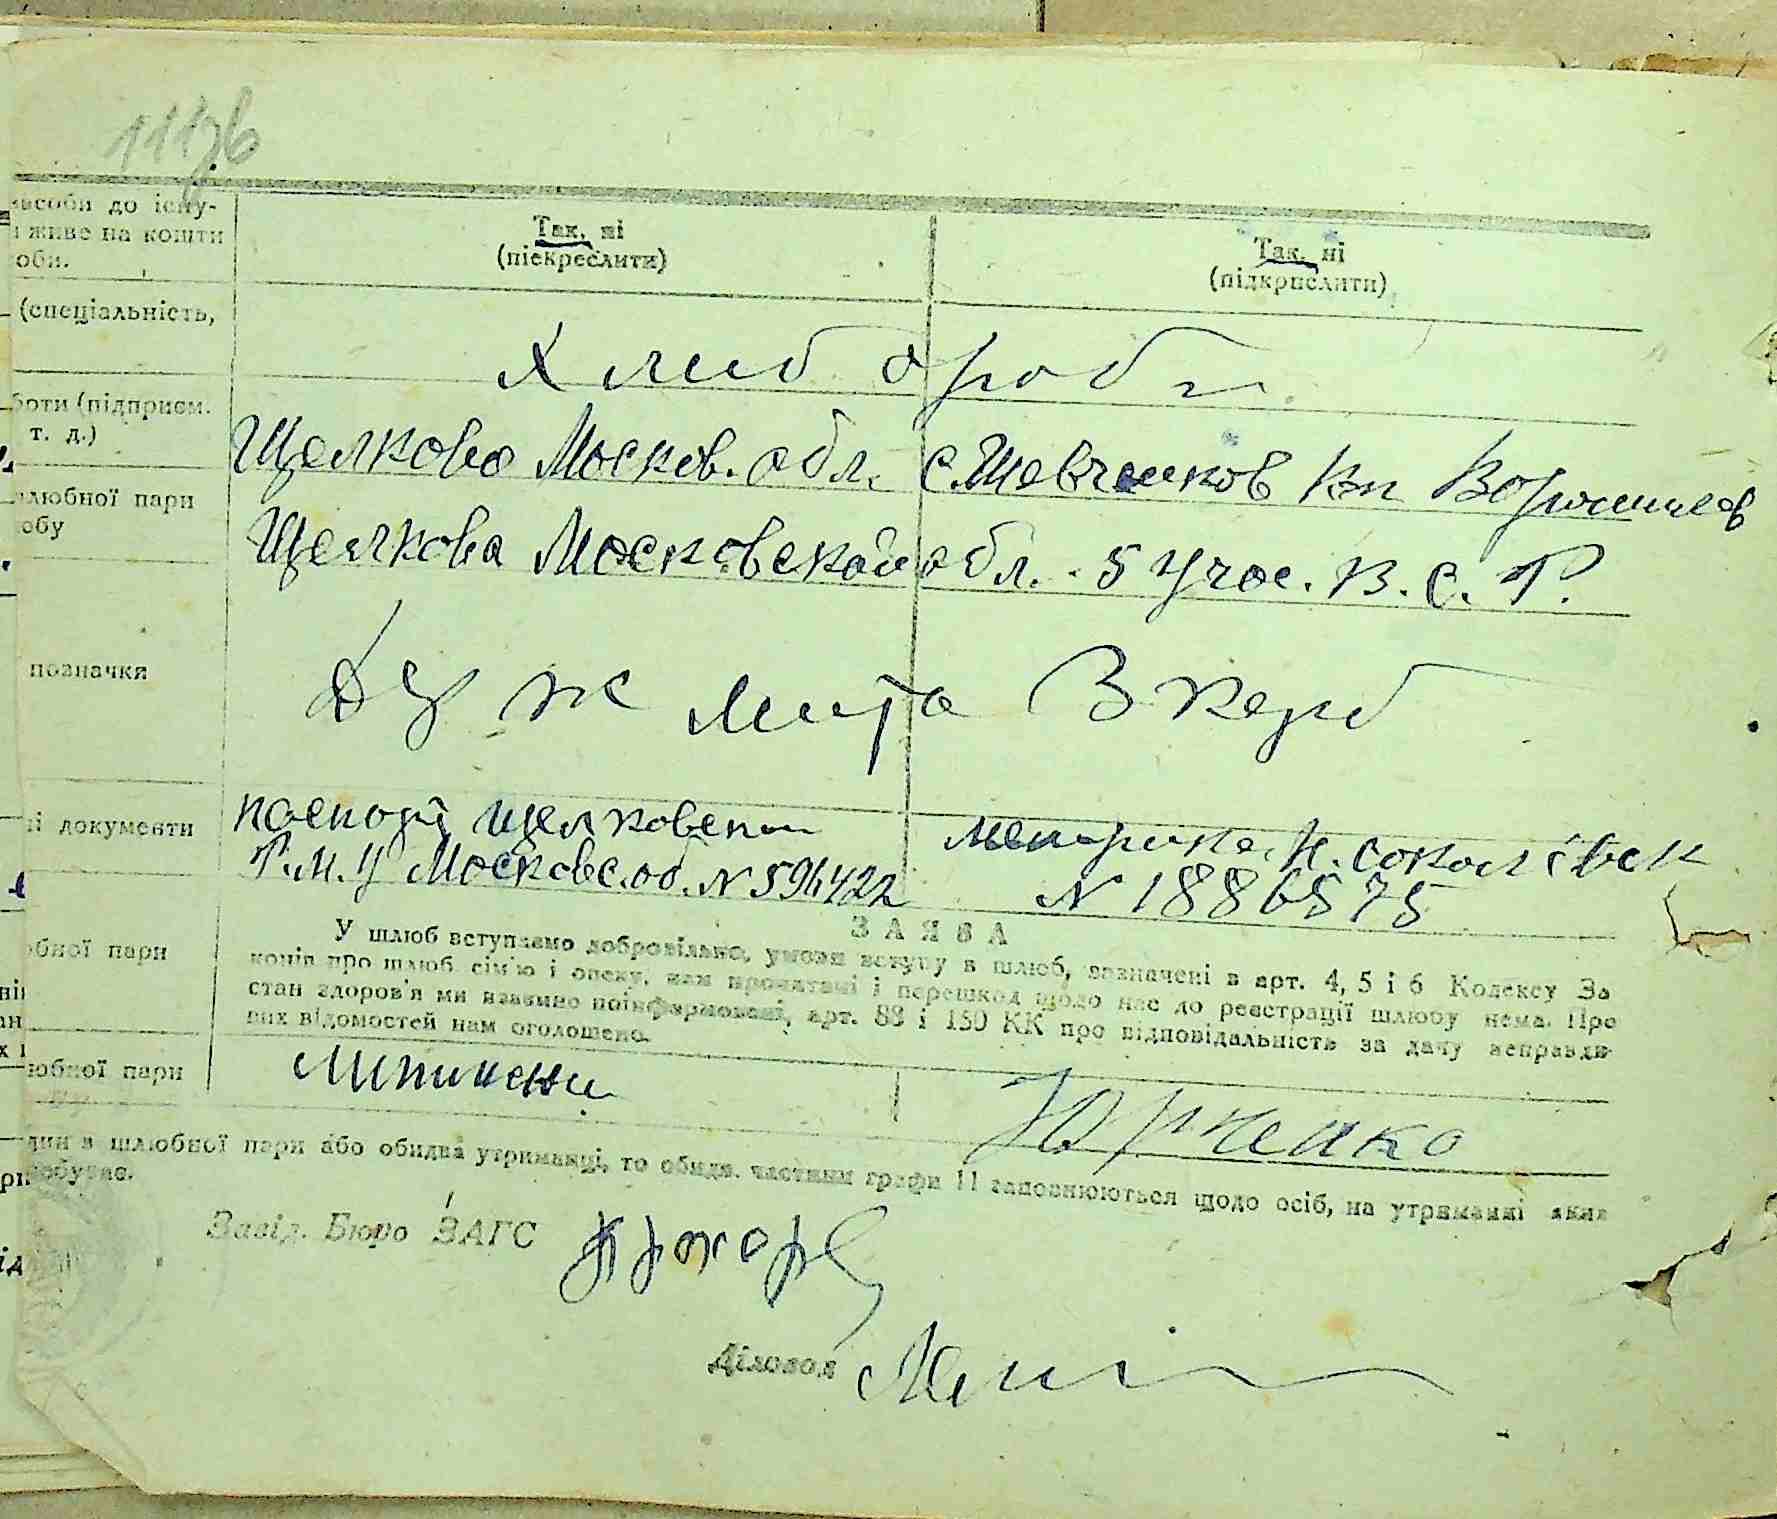 1176
засоби до існу-
і живе на кошти
оби.
Так, ні
(піекреслити)
Так, ні
(підкрислити)
(спеціальність,
Хлиб ороби
боти (підприєм.
т. д.)
Щелково Москов. обл. с. Шевченков
шлюбної пари
обу
Щелкова Московской обл. 5 учас. В. С. Р.
позначка
ні документи
паспорт Щелковским
Р.М.У Московс. об. N 596422
метрика Н. сокол
N 1886575
ЗАЯВА
обної пари
У шлюб вступаємо добровільно, умови вступу в шлюб, зазначені в арт. 4, 5 і 6 Кодексу За
конів про шлюб, сім'ю і опеку, нам прочитані і перешкод щодо нас до реєстрації шлюбу нема. Про
стан здоров'я ми взаємно поінформовані, арт. 88 і 150 КК про відповідальність за дачу неправди-
вих відомостей нам оголошено.
любної пари
Юрченко
дин з шлюбної пари або обидва утриманці, то обидв. частини графи 11 заповнюються щодо осіб, на утриманні яких
ребуває.
Завід. Бюро ЗАГС
Діловод